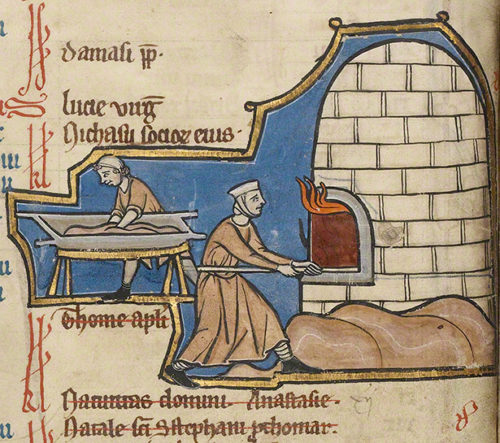 damasi pp̄.
lucie uirg̃
Nichasii socior eius.
Thome apl̄i
Natiuitas domini. Anastasie.
Natale sc̄i Stephani pthomar.